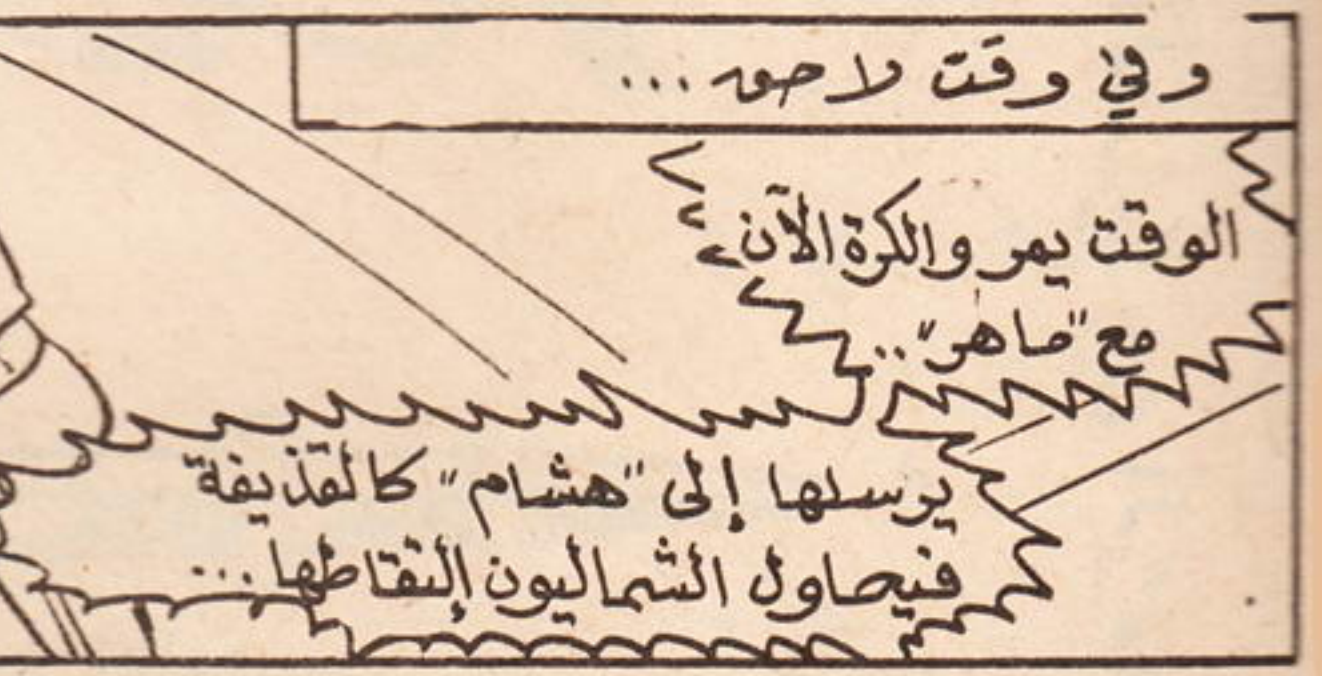 وفي وقت لاحق...
الوقت يمر والكرة الآن
مع "ماهر"..
يرسلها إلى "هشام" كالقذيفة
فيحاول الشماليون إلتقاطها...